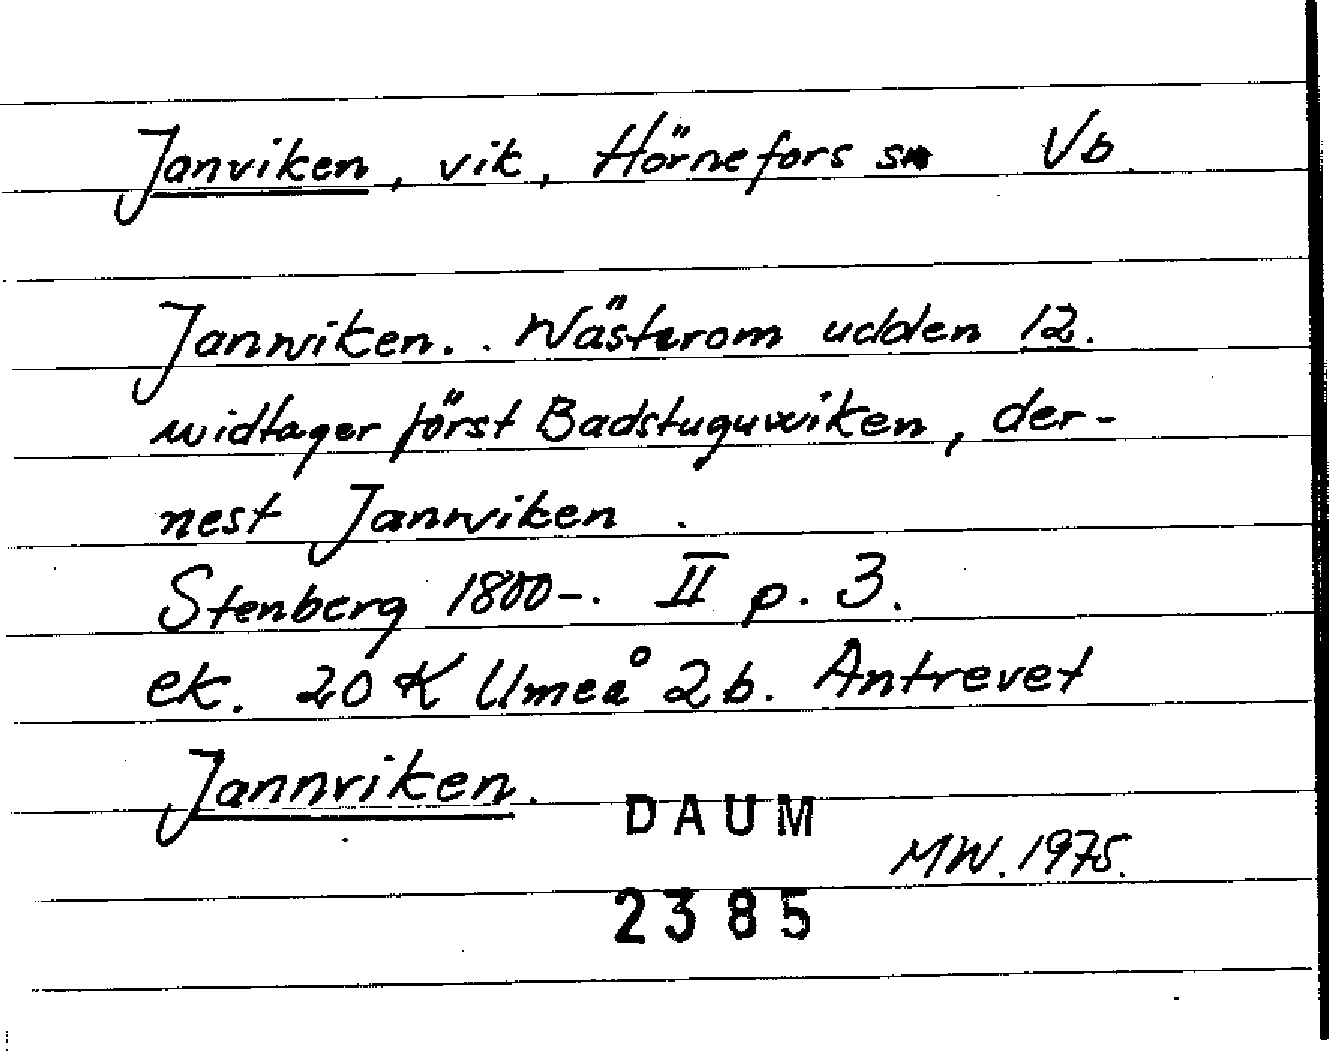 Janviken, vik, Hörnefors sn Vb
Janwiken. . Wästerom udden 12.
widtager först Badstuguwiken, der-
nest Janwiken .
Stenberg 1800-. II p. 3.
ek. 20 K Umeå 2b. Antrevet
Jannviken.
DAUM
MW. 1975.
2385